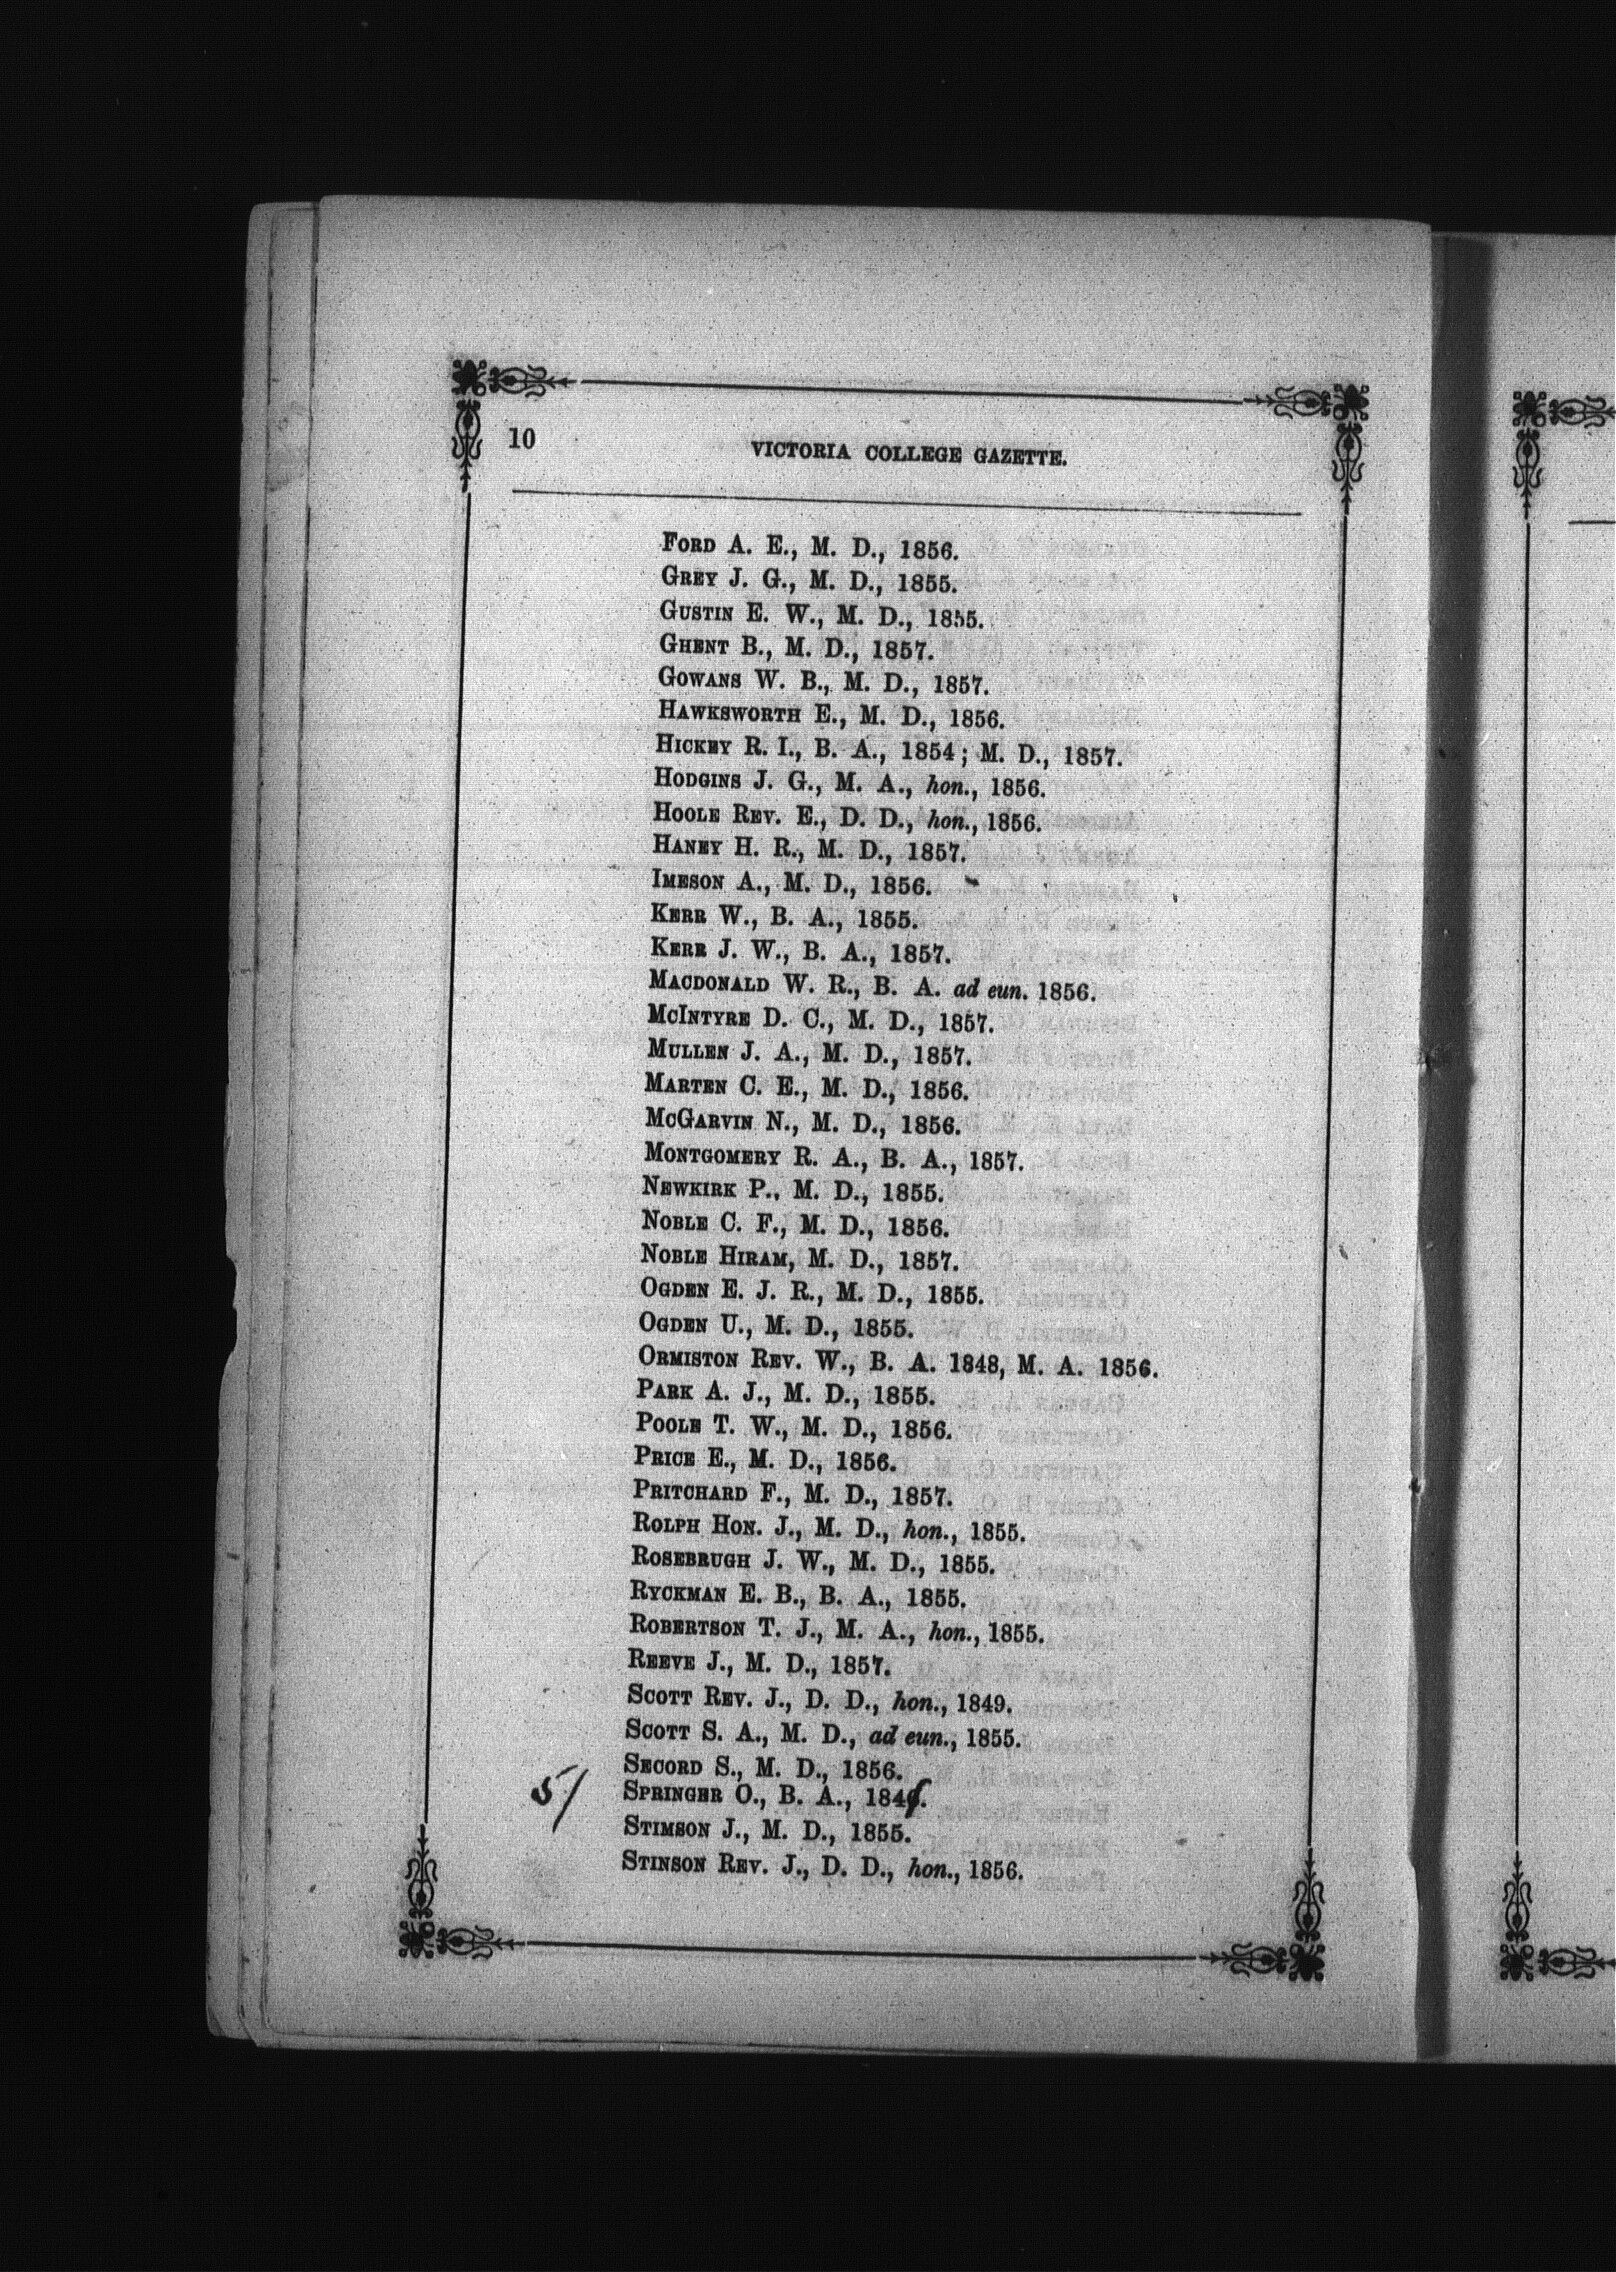 10
VICTORIA COLLEGE GAZETTE.
FORD A. E., M. D., 1856.
GREY J. G., M. D., 1855.
GUSTIN E. W., M. D., 1855.
GHENT B., M. D., 1857.
GOWANS W. B., M. D., 1857.
HAWKSWORTH E., M. D., 1856.
HICKEY R. I., B. A., 1854; M. D., 1857.
HODGINS J. G., M. A., hon., 1856.
HOOLE REV. E., D. D., hon., 1856.
HANEY H. R., M. D., 1857.
IMESON A., M. D., 1856.
KERR W., B. A., 1855.
KERR J. W., B. A., 1857.
MACDONALD W. R., B. A. ad eun. 1856.
MCINTYRE D. C., M. D., 1857.
MULLEN J. A., M. D., 1857.
MARTEN C. E., M. D., 1856.
MCGARVIN N., M. D., 1856.
MONTGOMERY R. A., B. A., 1857.
NEWKIRK P., M. D., 1855.
NOBLE C. F., M. D., 1856.
NOBLE HIRAM, M. D., 1857.
OGDEN E. J. R., M. D., 1855.
OGDEN U., M. D., 1855.
ORMISTON REV. W., B. A. 1848, M. A. 1856.
PARK A. J., M. D., 1855.
POOLE T. W., M. D., 1856.
PRICE E., M. D., 1856.
PRITCHARD F., M. D., 1857.
ROLPH HON. J., M. D., hon., 1855.
ROSEBRUGH J. W., M. D., 1855.
RYCKMAN E. B., B. A., 1855.
ROBERTSON T. J., M. A., hon., 1855.
REEVE J., M. D., 1857.
SCOTT REV. J., D. D., hon., 1849.
SCOTT S. A., M. D., ad eun., 1855.
SECORD S., M. D., 1856.
5/ SPRINGER O., B. A., 184
STIMSON J., M. D., 1855.
STINSON REV. J., D. D., hon., 1856.